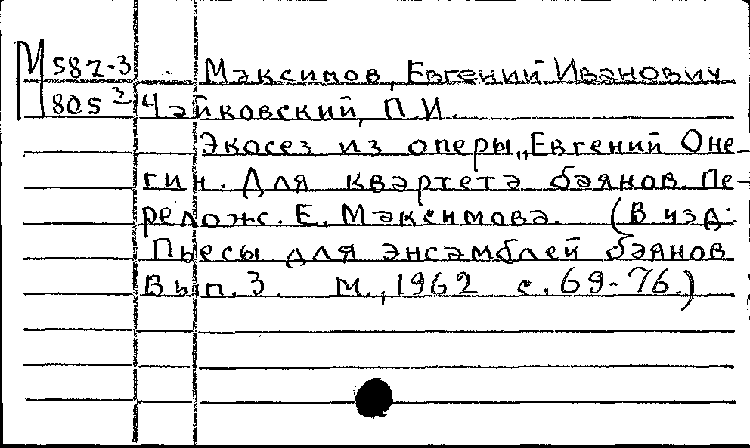 М 587-3 Максимов, Евгений Иванович
805² Чайковский, П.И.
Экосез из оперы „Евгений Оне-
гин. Для квартета баянов. Пе-
релож. Е. Максимова. (В изд.:
Пьесы для энсамблей баянов
Вып. 3. М., 1962 с. 69-76.)